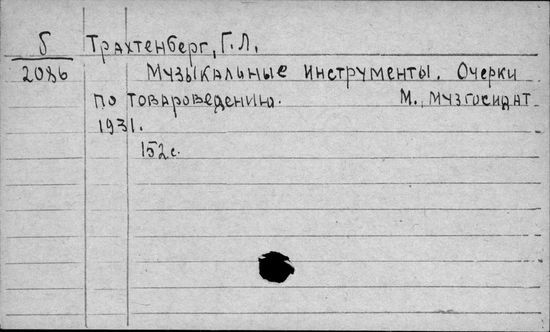 Б Трахтенберг, Г.Л.
2086 Музыкальные инструменты. Очерки
по товароведению. М., Музгосидат
1931.
152с.